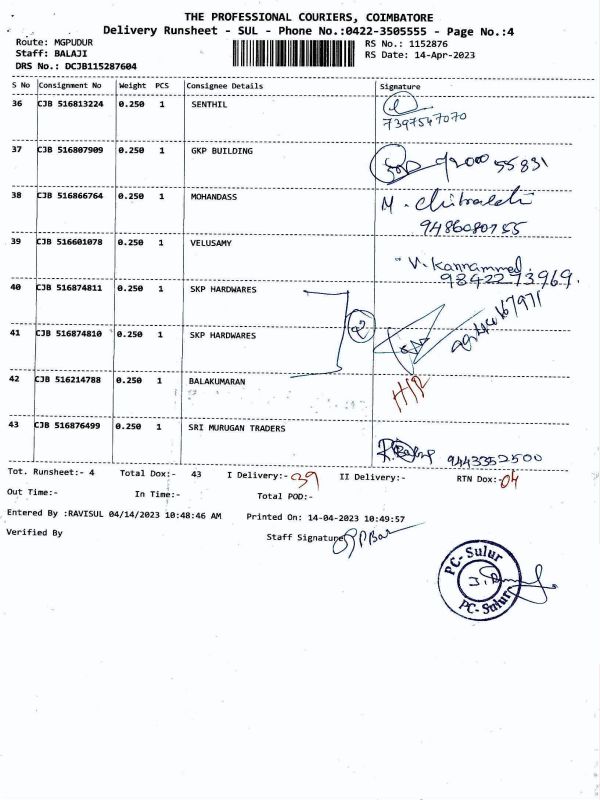 THE PROFESSIONAL COURIERS, COIMBATORE
Delivery Runsheet - SUL - Phone No.:0422-3505555 - Page No.:4
Route: MGPUDUR RS No.: 1152876
Staff: BALAJI RS Date: 14-Apr-2023
DRS No.: DCJB115287604
S No Consignment No Weight PCS Consignee Details Signature
36 CJB 516813224 0.250 1 SENTHIL
7397547070
37 CJB 516807909 0.250 1 GKP BUILDING
55831
38 CJB 516866764 0.250 1 MOHANDASS M.
9486080755
39 CJB 516601078 0.250 1 VELUSAMY
V. Kannammal
9842273969.
40 CJB 516874811 0.250 1 SKP HARDWARES
2
41 CJB 516874810 0.250 1 SKP HARDWARES
42 CJB 516214788 0.250 1 BALAKUMARAN
43 CJB 516876499 0.250 1 SRI MURUGAN TRADERS
9443352500
Tot. Runsheet:- 4 Total Dox:- 43 I Delivery:- 39 II Delivery:- RTN Dox:- 04
Out Time:- In Time:- Total POD:-
Entered By :RAVISUL 04/14/2023 10:48:46 AM Printed On: 14-04-2023 10:49:57
Verified By Staff Signature
PC-Sulur
PC-Sulur